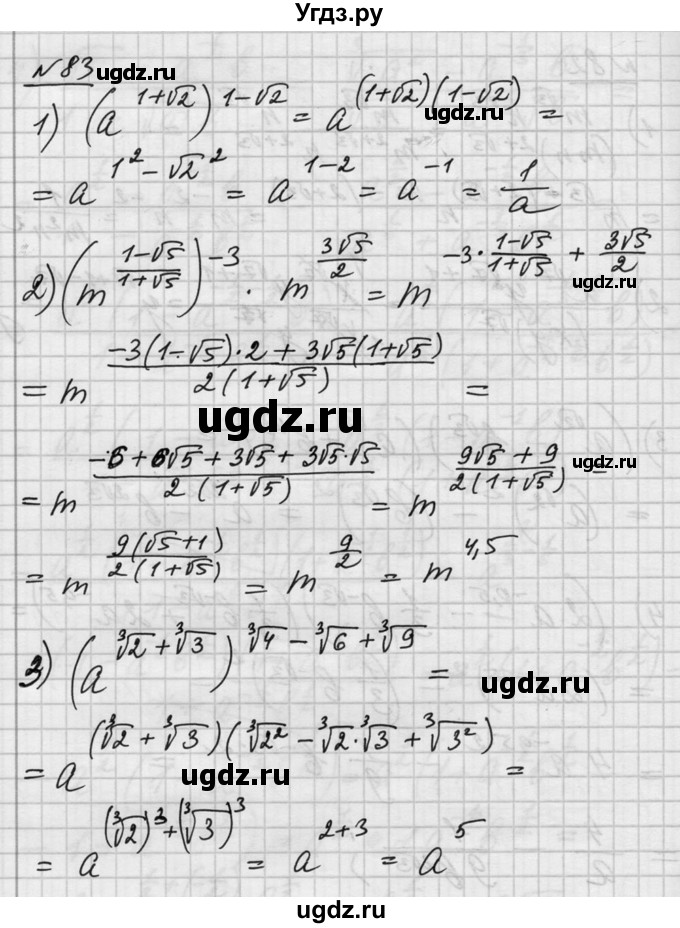 Угдз.ру
№83 ugdz.ru
1) (a^(1+√2))^(1-√2) = a^((1+√2)(1-√2)) = ugdz.ru
= a^(1²-√2²) = a^(1-2) = a^(-1) = 1/a
2) (m^((1-√5)/(1+√5)))^(-3) · m^(3√5/2) = m^(-3·(1-√5)/(1+√5) + 3√5/2) ugdz.ru
= m^((-3(1-√5)·2+3√5(1+√5))/(2(1+√5))) =
ugdz.ru
= m^((-6+6√5+3√5+3√5·√5)/(2(1+√5))) = m^((9√5+9)/(2(1+√5))) =
= m^(9(√5+1)/(2(1+√5))) = m^(9/2) = m^(4,5)
3) (a^(∛2+∛3))^(∛4-∛6+∛9) = ugdz.ru
= a^((∛2+∛3)(∛2²-∛2·∛3+∛3²)) = ugdz.ru
= a^((∛2)³+(∛3)³) = a^(2+3) = a^5
ugdz.ru